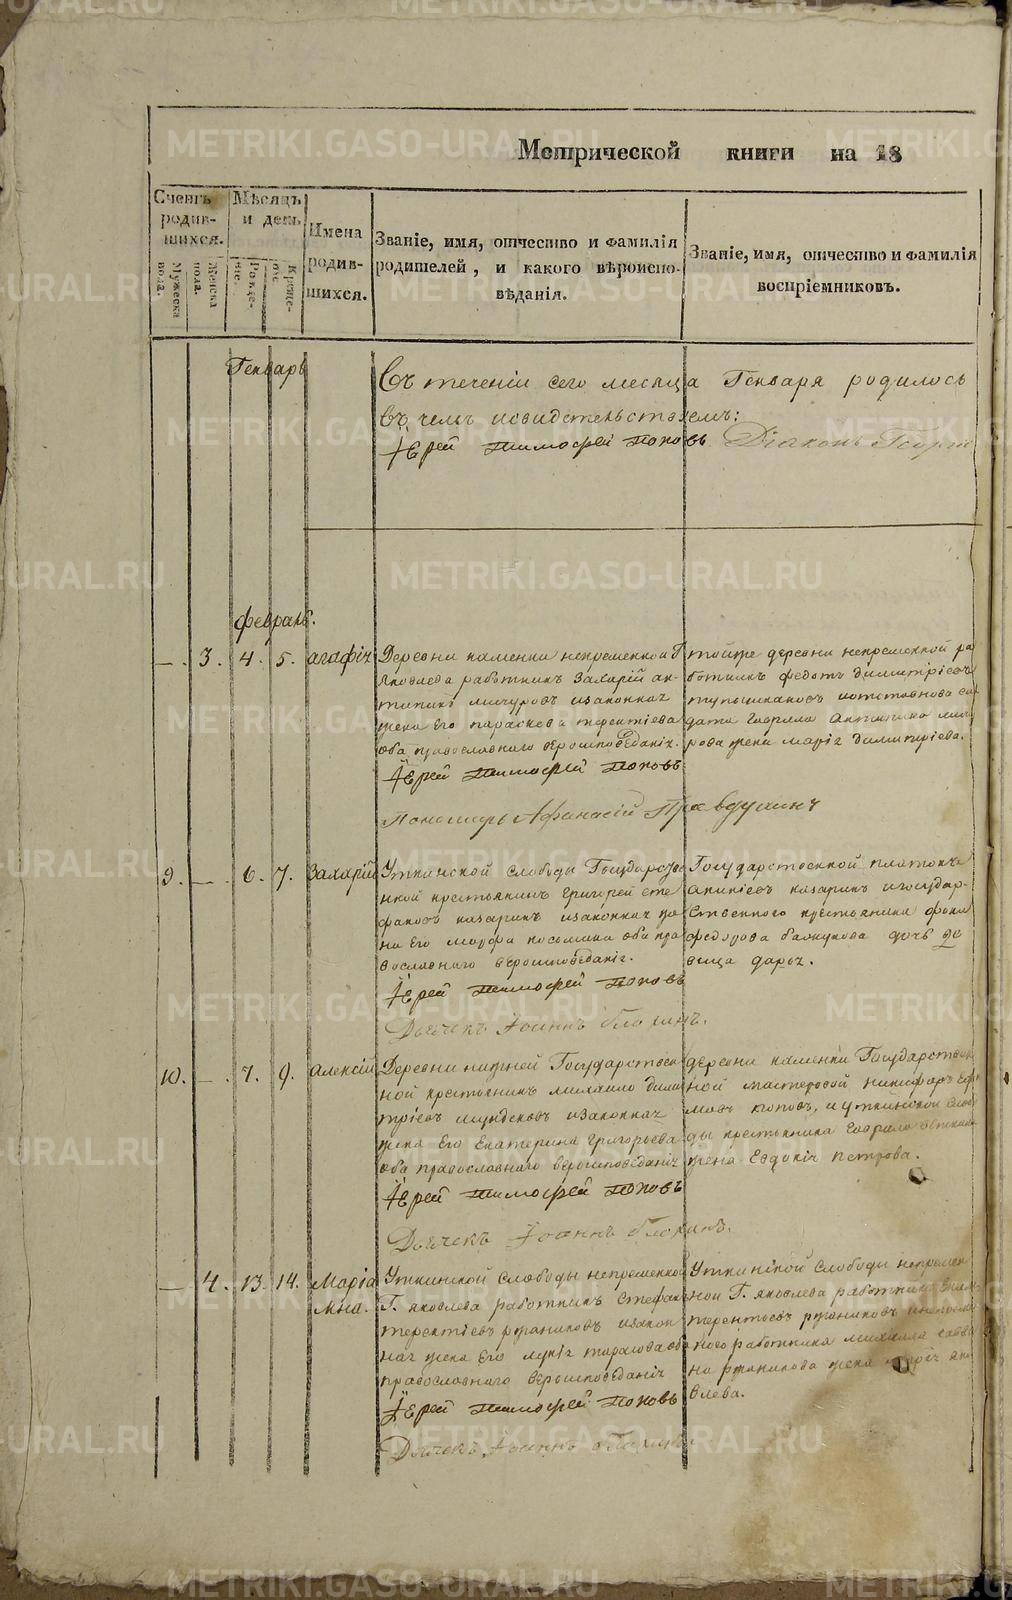 Метрической книги на 18
Счетъ родившихся.
Мужеска пола.
Женска пола.
Мѣсяцъ и день
Рожденіе.
Крещеніе.
Имена родившихся.
Званіе, имя, отчество и фамилія родителей, и какого вѣроисповѣданія.
Званіе, имя, отчество и фамилія воспріемниковъ.
Генварь
Въ теченіи сего месяца Генваря родилось
въ чемъ и свидетельствуемъ:
Іерей Тимофей Поповъ Діаконъ Георгій
Февраль.
—. 3. 4. 5. Агафія
Деревни каменки непременной Г
Яковлева работникъ Захарій Ан-
типинъ мичуровъ изаконная
жена Его параскева терентіева
оба православнаго вероисповеданія.
Іерей Тимофей Поповъ
Пономарь Афанасій Правдухинъ
тойже деревни непременной ра
ботникъ федотъ димитріевъ
иотставнова сол
дата гаврила Антипина мичу
рова жена марія димитріева.
9. —. 6. 7. Захарій
Уткинской слободы Государстве
нной крестьянинъ Григорей Сте
фановъ казаринъ изаконная же
на Его оба пра
вославнаго вероисповеданія.
Іерей Тимофей Поповъ
Дьячекъ Іоаннъ
Государственной платонъ
казаринъ игосудар-
ственного крестьянина фоки
федорова дочь де
вица дарья.
10. —. 7. 9. Алексій
Деревни нижней Государствен
ной крестьянинъ михаило дими
тріевъ изаконная
жена Его Екатерина Григорьева
оба православнаго вероисповеданія
Іерей Тимофей Поповъ
Дьячекъ Іоаннъ
деревни каменки Государствен
ной мастеровой никифоръ Ефи
мовъ поповъ, и уткинской слобо
ды крестьянина Гаврила
жена Евдокія петрова.
— 4. 13. 14. Маріамна.
Уткинской слободы непременной
Г. яковлева работникъ Стефанъ
терентіевъ ржаниковъ изакон
ная жена Его лукія тарасова оба
православнаго вероисповеданія
Іерей Тимофей Поповъ
Дьячекъ Іоаннъ
Уткинской слободы непремен
ной Г. яковлева работникъ
терентьевъ ржаниковъ
работника михаила савви
на ржаникова жена марія яко
влева.
METRIKI.GASO-URAL.RU